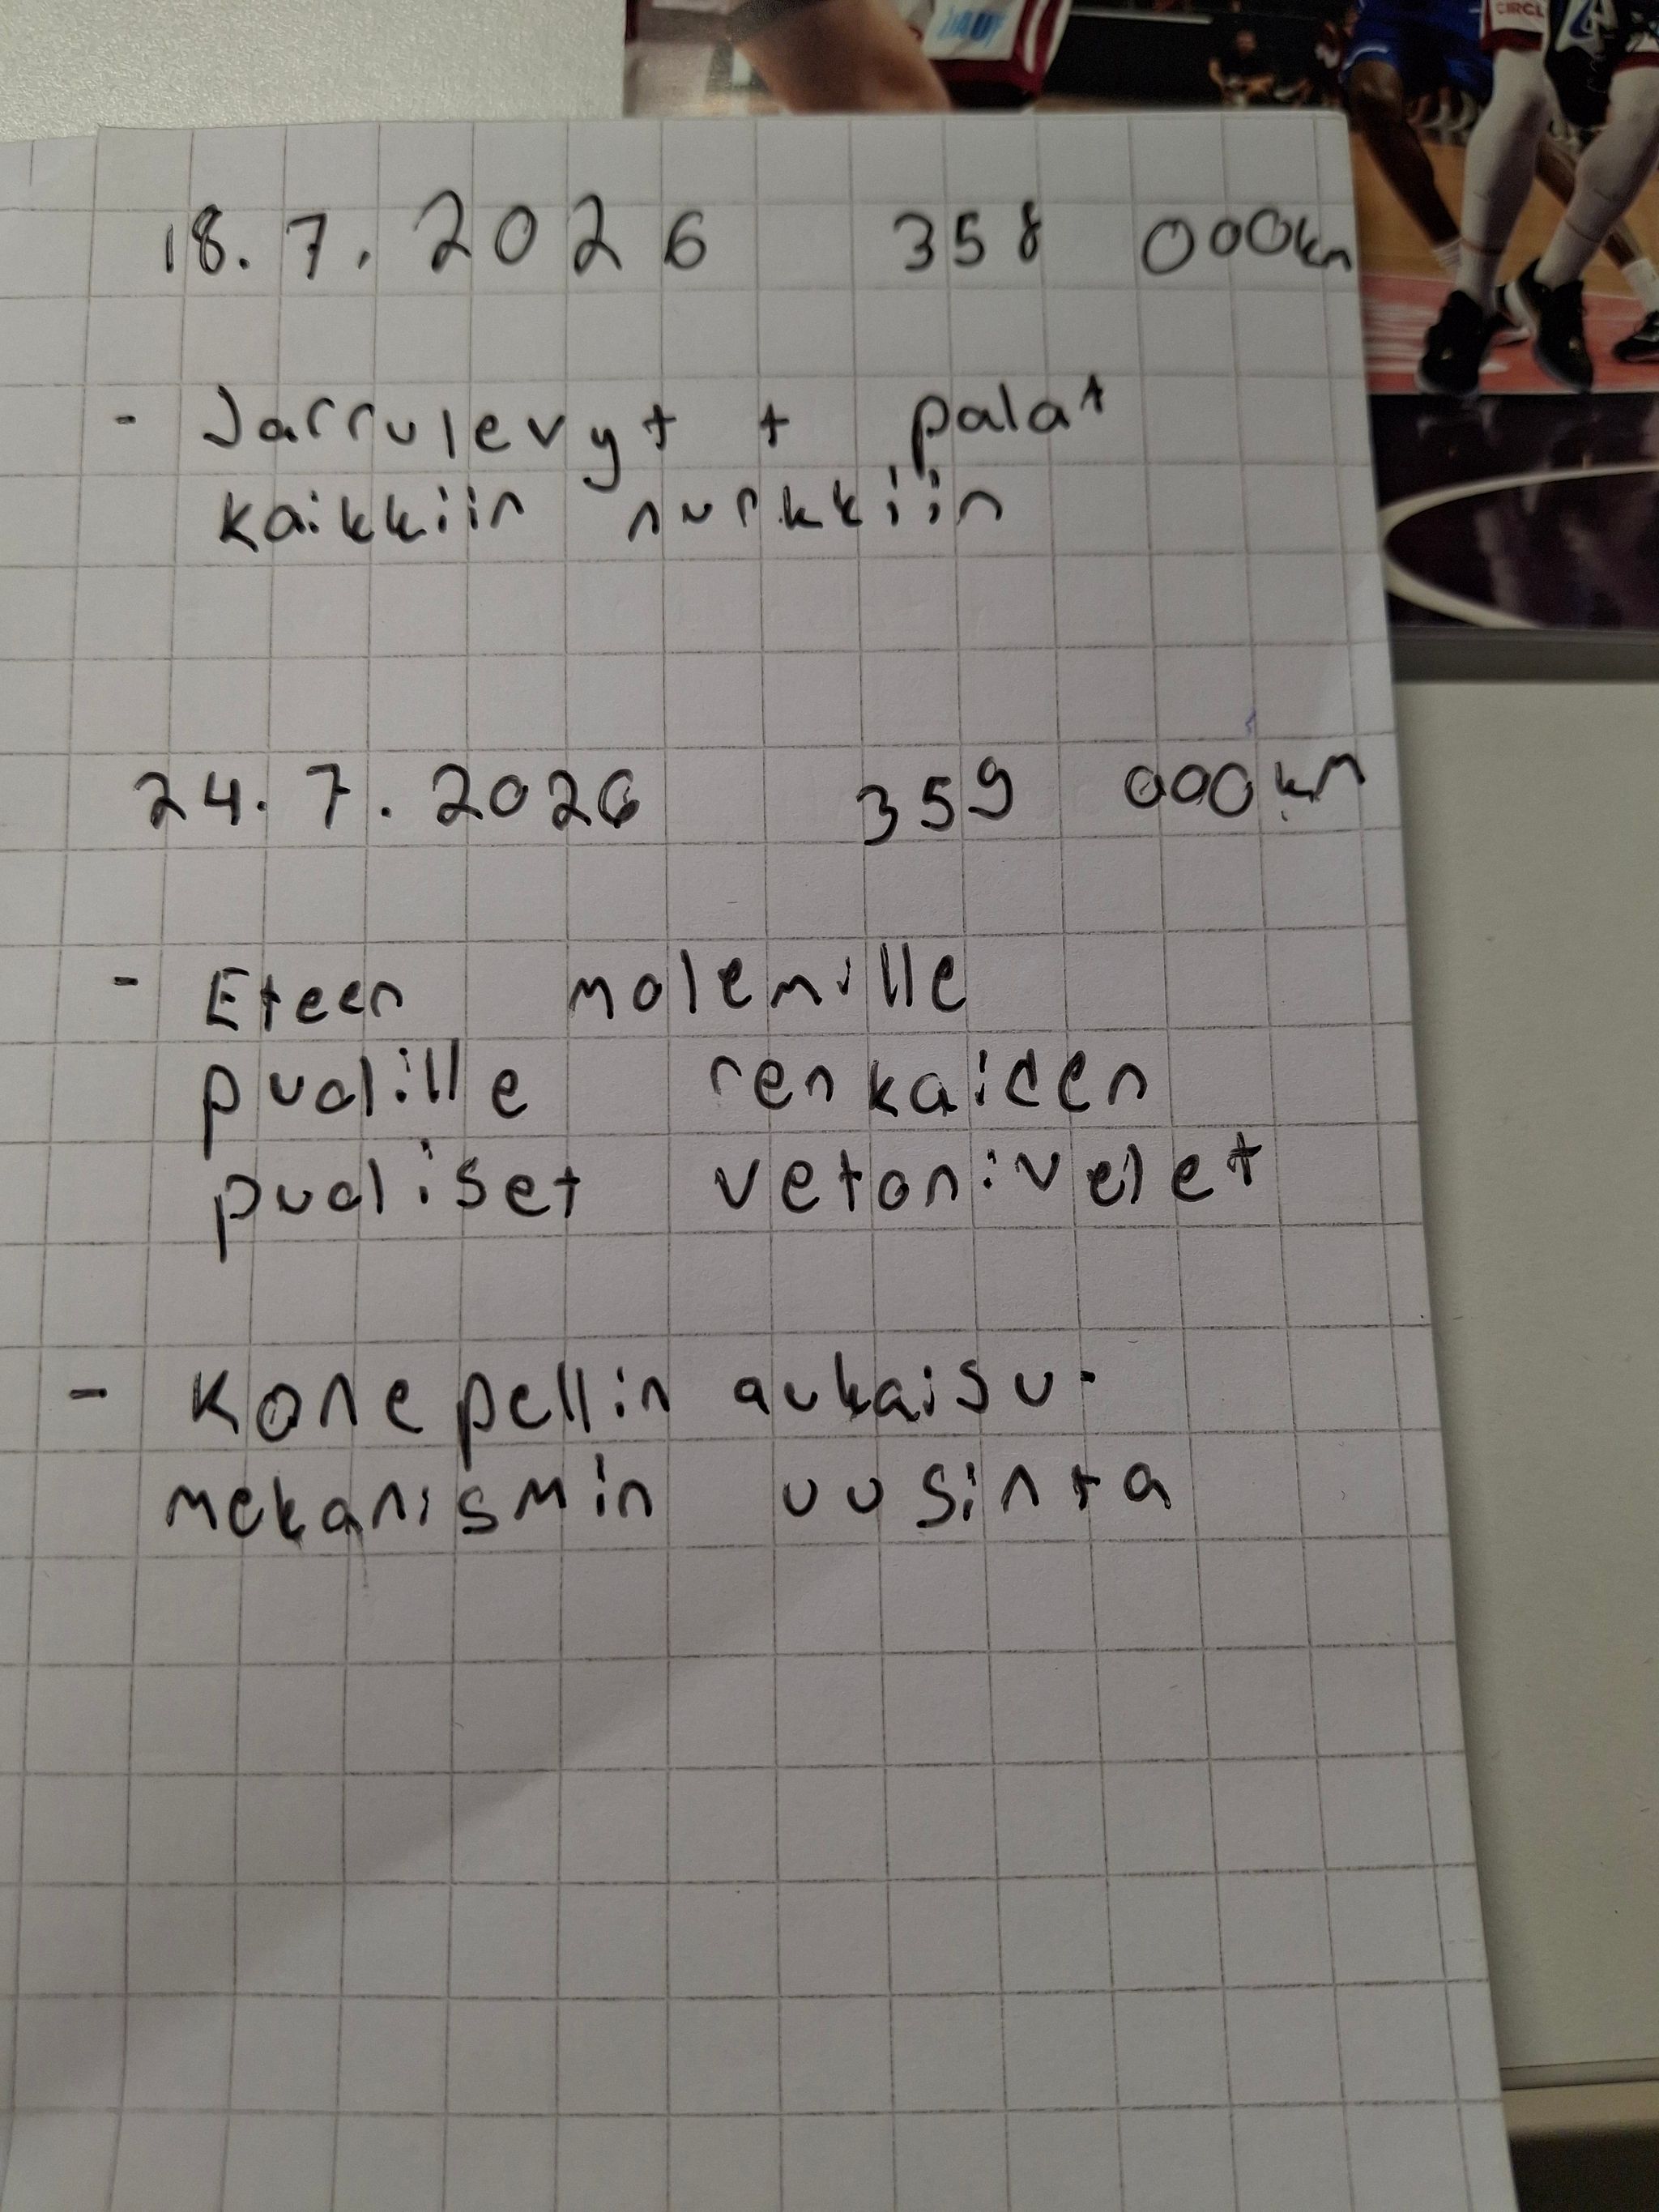 CIRCL
18.7.2026 358 000km
- Jarrulevyt + palat
kaikkiin nurkkiin
24.7.2026 359 000km
- Eteen molemille
puolille renkaiden
puoliset vetonivelet
- Konepellin aukaisu-
mekanismin uusinta